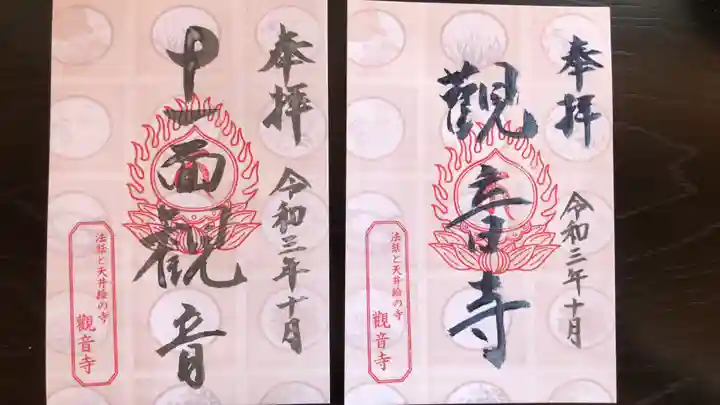 奉拝
令和三年十月
十一面観音
法話と天井絵の寺
觀音寺
奉拝
令和三年十月
觀音寺
法話と天井絵の寺
觀音寺